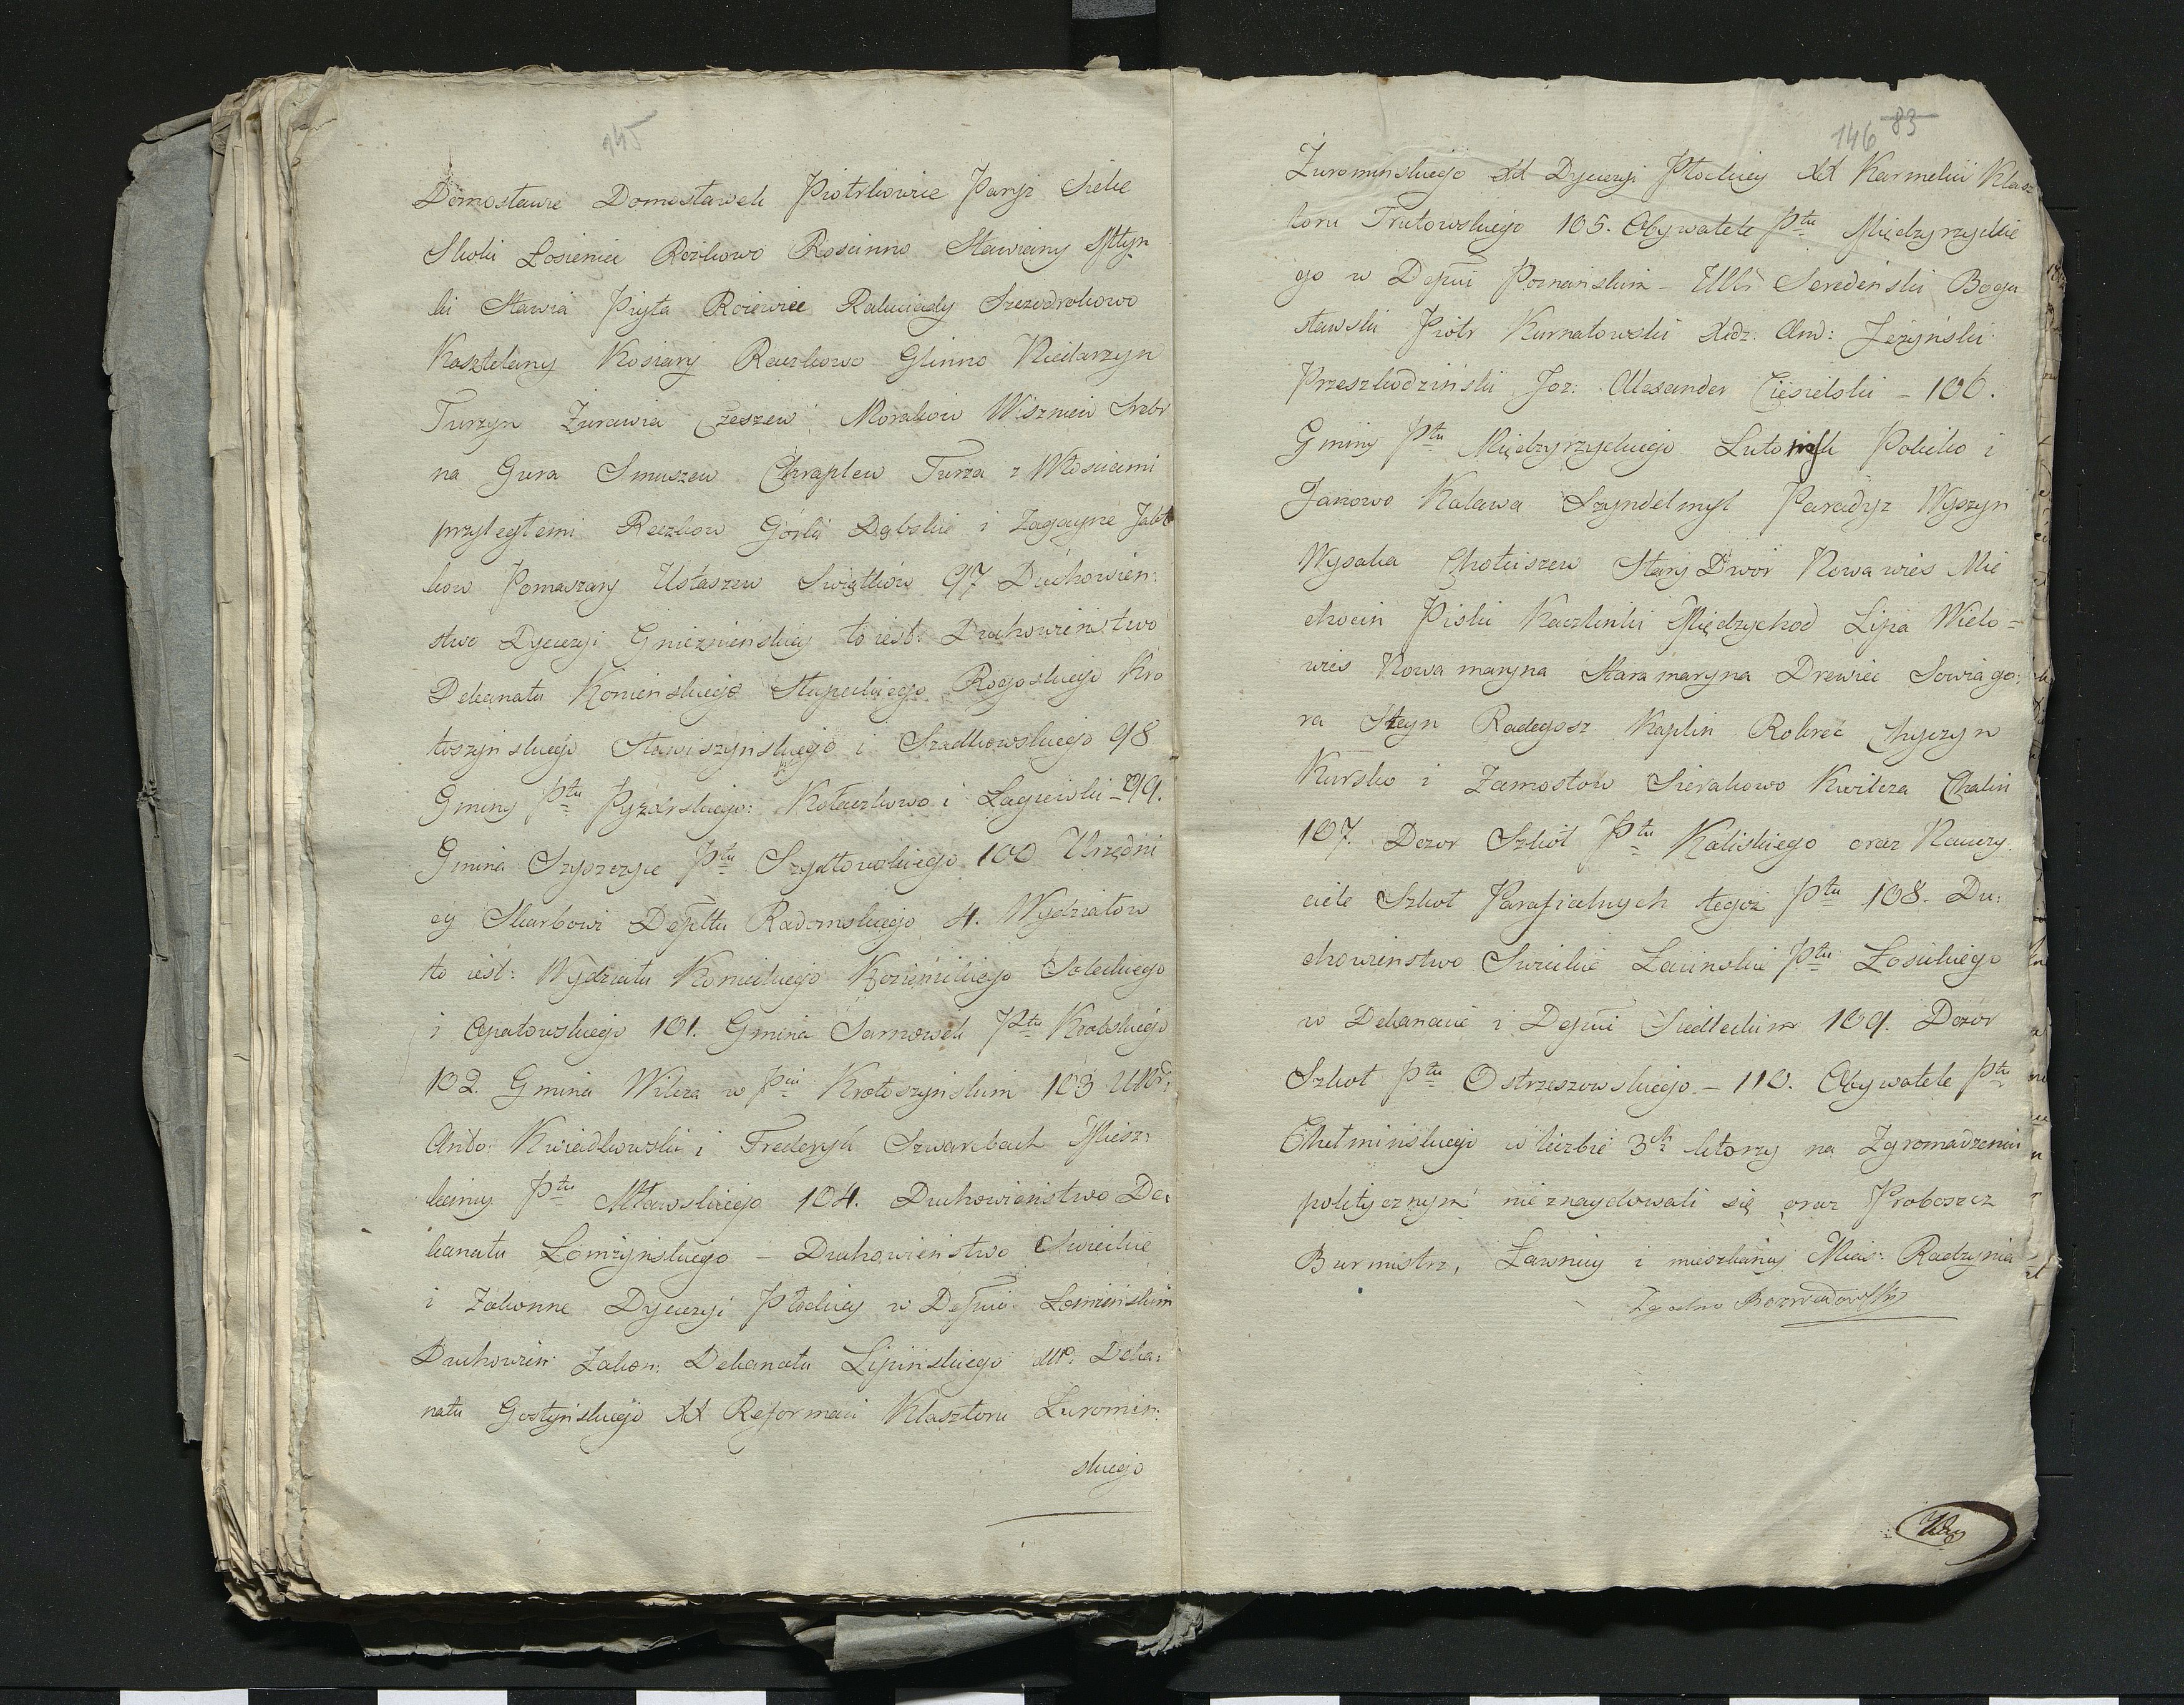 145
Domosławie Domosławek Piotrkowice Paryż Siele
Skoki Łosieniec Rożkowo Roscinno Stawiany Młyn
ki Stawia Przyta Rożewice Rakwiady Szczodrokowo
Kasztelany Kosiary Raczkowo Glinno Niedarzyn
Turzyn Żurawia Czeszew Morakow Wiszniew Srebr
na Gura Smuszew Chraplew Turza z Włosciami
przyległemi Raczkow Górki Dąbskie i Zagayne Jabł
kow Pomarzany Ustaszew Swiątków 97 Duchowien:
stwo Dyecezyi Gnieznienskiey to iest: Duchowieństwo
Dekanatu Konienskiego Słupeckiego Rogoskiego Kro
toszynskiego Stawiszynskiego i Szadkowskiego 98
Gminy Ptu Pyzdrskiego: Kołaczkowo i Łagiewki – 99.
Gmina Szyszczyce Ptu Szydłowskiego 100 Urzędni
cy Skarbowi Depttu Radomskiego 4. Wydziałow
to iest: Wydziału Konieckiego Kozienickiego Soleckiego
i Opatowskiego 101. Gmina Sarnowek Ptu Krobskiego
102. Gmina Wilcza w Pcie Krotoszynskim 103 Ur:
Anto: Kwiatkowski i Fryderyk Szwarcbach Miesz:
kancy Ptu Mławskiego 104. Duchowieństwo De:
kanatu Łomzyńskiego – Duchowieństwo Swieckie
i Zakonne Dyecezyi Płockiey w Depcie Łomzinskim
Duchowień: Zakon: Dekanatu Lipińskiego Deka:
natu Gostyńskiego XX Reformaci Klasztoru Żuromin:
skiego
146 83
Żurominskiego XX Dyecezyi Płockiey XX Karmelici Klasz
toru Trutowskiego 105. Obywatele Ptu Międzyrzyckie
go w Depcie Poznańskim – Seredeński Bogu
sławski Piotr Kurnatowski Andz: And: Jeżyński
Przeszkodziński Joz: Alexander Ciesielski – 106.
Gminy Ptu Międzyrzyckiego Lutomsk Policko i
Janowo Kaława Szyndelmyl Paradyz Wyszyn
Wysoka Chołuiszew Stary Dwór Nowa wies Mie
chocin Piski Kaczlinki Międzychod Lipa Wielo=
wies Nowa maryna Stara maryna Drewiec Sowia go:
ra Steyn Radegosz Kaplin Rokreć Chyczyn
Kursko i Zamostow Sierakowo Kwilcza Chalin
107. Dozor Szkół Ptu Kaliskiego oraz Nauczy
ciele Szkoł Parafialnych tegoż Ptu 108. Du:
chowienstwo Swieckie Łacinskie Ptu Łosickiego
w Dekanacie i Depcie Siedleckim 109. Dozor
Szkoł Ptu Ostrzeszowskiego – 110. Obywatele Ptu
Chełminskiego w liczbie 3ch ktorzy na Zgromadzeniu
politycznym nieznaydowali się oraz Proboszcz
Burmistrz, Ławnicy i mieszkancy Mias: Radzynia
Zgodno Rozwadowski